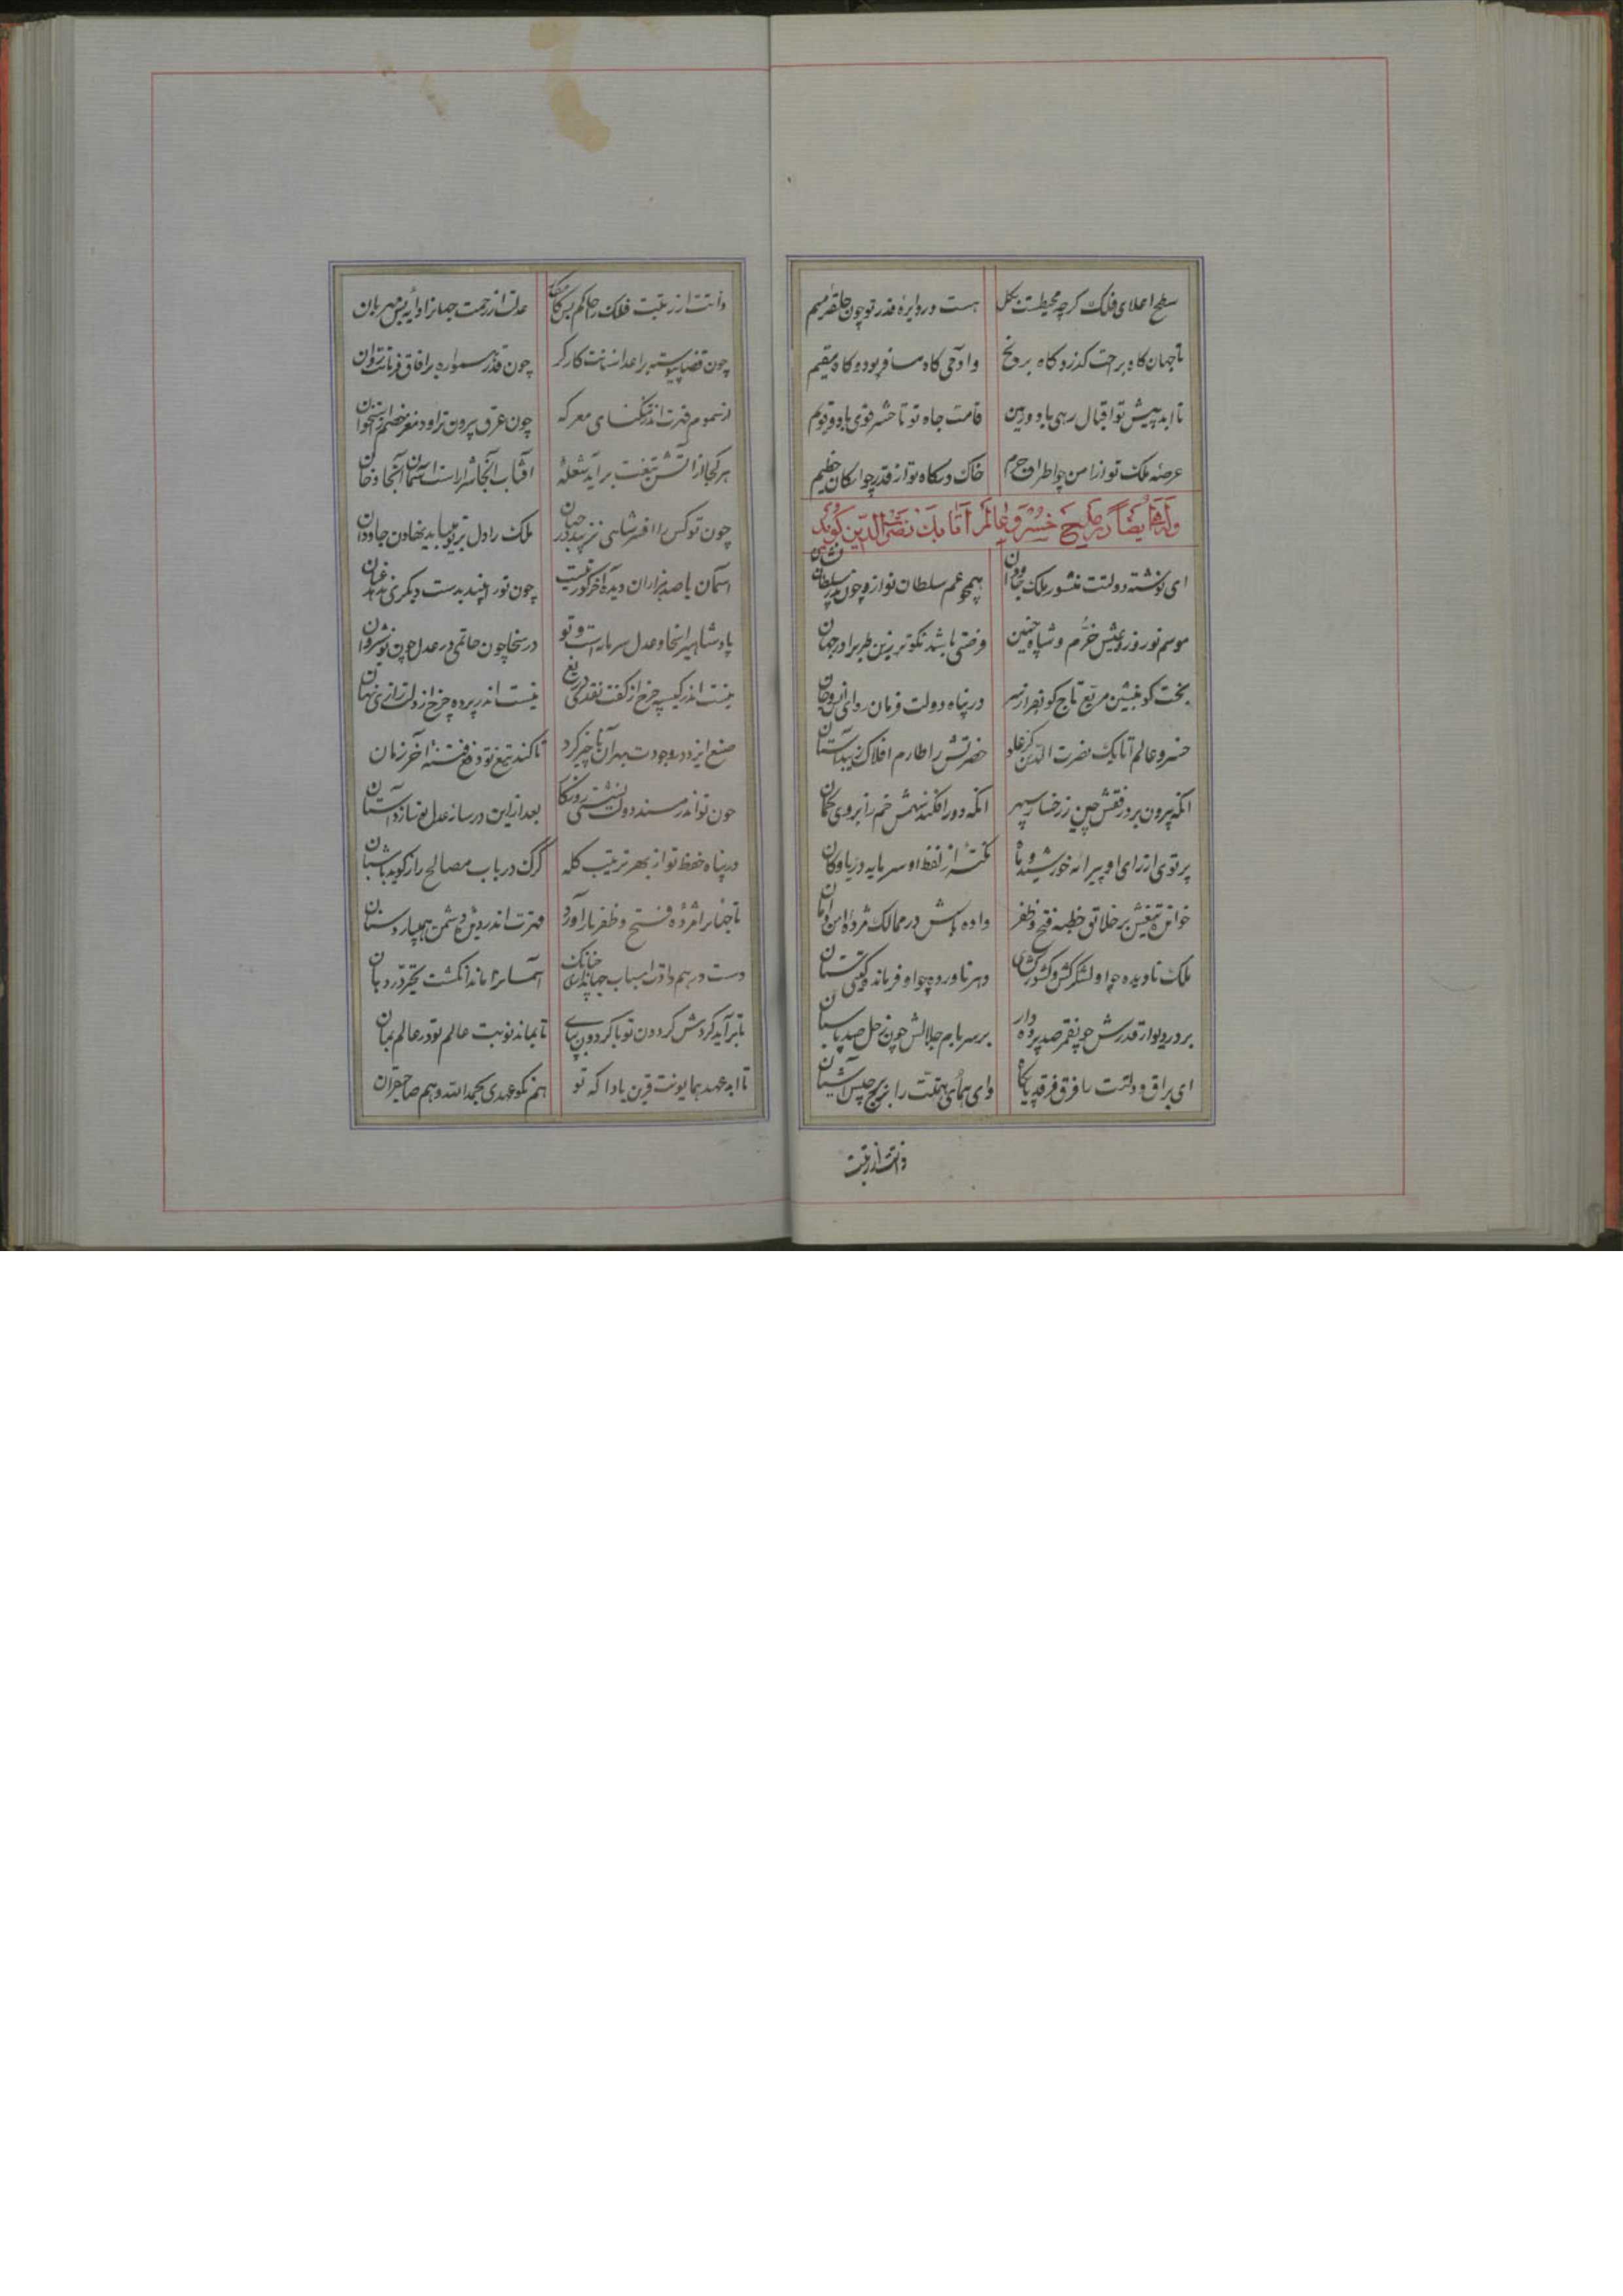 سطح اعلای فلک گرچه محیطست بکل هست در دایرهٔ قدر تو چون حلقهٔ میم
تا جهان گاه براحت گذرد گاه برنج وادمی گاه مسافر بود و گاه مقیم
تا ابد پیش تو اقبال رهی باد و رهین قامت جاه تو تا حشر قوی باد و قویم
عرصهٔ ملک تو از امن چو اطراف حرم خاک درگاه تو از قدر چو ارکان حطیم
وله ایضا در مدیح خسرو عالم اتابک نصرة الدین گوید
ای نوشته دولتت منشور ملک جاودان همچو عم سلطان نواز و چون پدر سلطان نشان
موسم نوروز و عیش خرم و شاه چنین فرصتی باشد نکوتر زین طرب را در جهان
بخت کو بنشین مربع تاج کو بفراز سر در پناه دولت فرمان روای انس و جان
خسرو عالم اتابک نصرت الدین کز علو حضرتش را طارم افلاک زیبد آستان
انکه بیرون برد رفقش چین ز رخسار سپهر انکه دور افکند سهمش خم ز ابروی کمان
پرتوی از رای او پیرایه خورشید و ماه نکتهٔ از لفظ او سرمایه دریا و کان
خوانده تیغش بر خلایق خطبه فتح و ظفر داده باسش در ممالک مژده امن و امان
ملک نادیده چو او لشکرکش و کشورگشای دهر ناورده چو او فرمانده گیتی ستان
بر در دیوار قدرش چون قمر صد پرده دار بر سر بام جلالش چون زحل صد پاسبان
ای براق دولتت را فرق فرقد پایگاه وای همای همتت را برج برجیس آشیان
ذاتت از رتبت
ذاتت از رتبت فلک را حاکم بس کامکار عدلت از رحمت جهانرا دایهٔ بس مهربان
چون قضا پیوسته بر اعدا سنانت کارگر چون قدر همواره بر آفاق فرمانت روان
از سموم قهرت اندر تنگنای معرکه چون عرق بیرون تراود مغز خصم از استخوان
هر کجا از آتش تیغت برآید شعلهٔ آفتاب آنجا شرار است آسمان آنجا دخان
چون تو کس را افسر شاهی نزیبد در جهان ملک را دل بر تو میباید نهادن جاودان
آسمان با صد هزاران دیده آخر کور نیست چون تو را بیند بدست دیگری ندهد عنان
پادشاهی را سخا و عدل سرمایه است و تو در سخا چون حاتمی در عدل چون نوشروان
نیست اندر کیسه چرخ از کفت نقدی دریغ نیست اندر پرده چرخ از دلت رازی نهان
صنع ایزد در وجودت بهر آن تاخیر کرد تا کند تیغ تو دفع فتنه آخر زمان
چون تو اندر مسند دولت نشستی روزگار بعد ازین در ساز عدل نو نسازد آستان
در پناه حفظ تو از بهر ترتیب گله گرگ در باب مصالح راز گوید با شبان
تا جهانرا مژده فتح و ظفر بار آورد قهرت اندر دیده دشمن همی کارد سنان
دست در هم داد اسباب جهانداری چنانک آسمانرا ماند انگشت تحیر در دهان
تا برآید گردش گردون تو با گردون بپای تا بماند نوبت عالم تو در عالم بمان
تا ابد عهد همایونت قرین بادا که تو هم نکو عهدی بحمدالله و هم صاحبقران